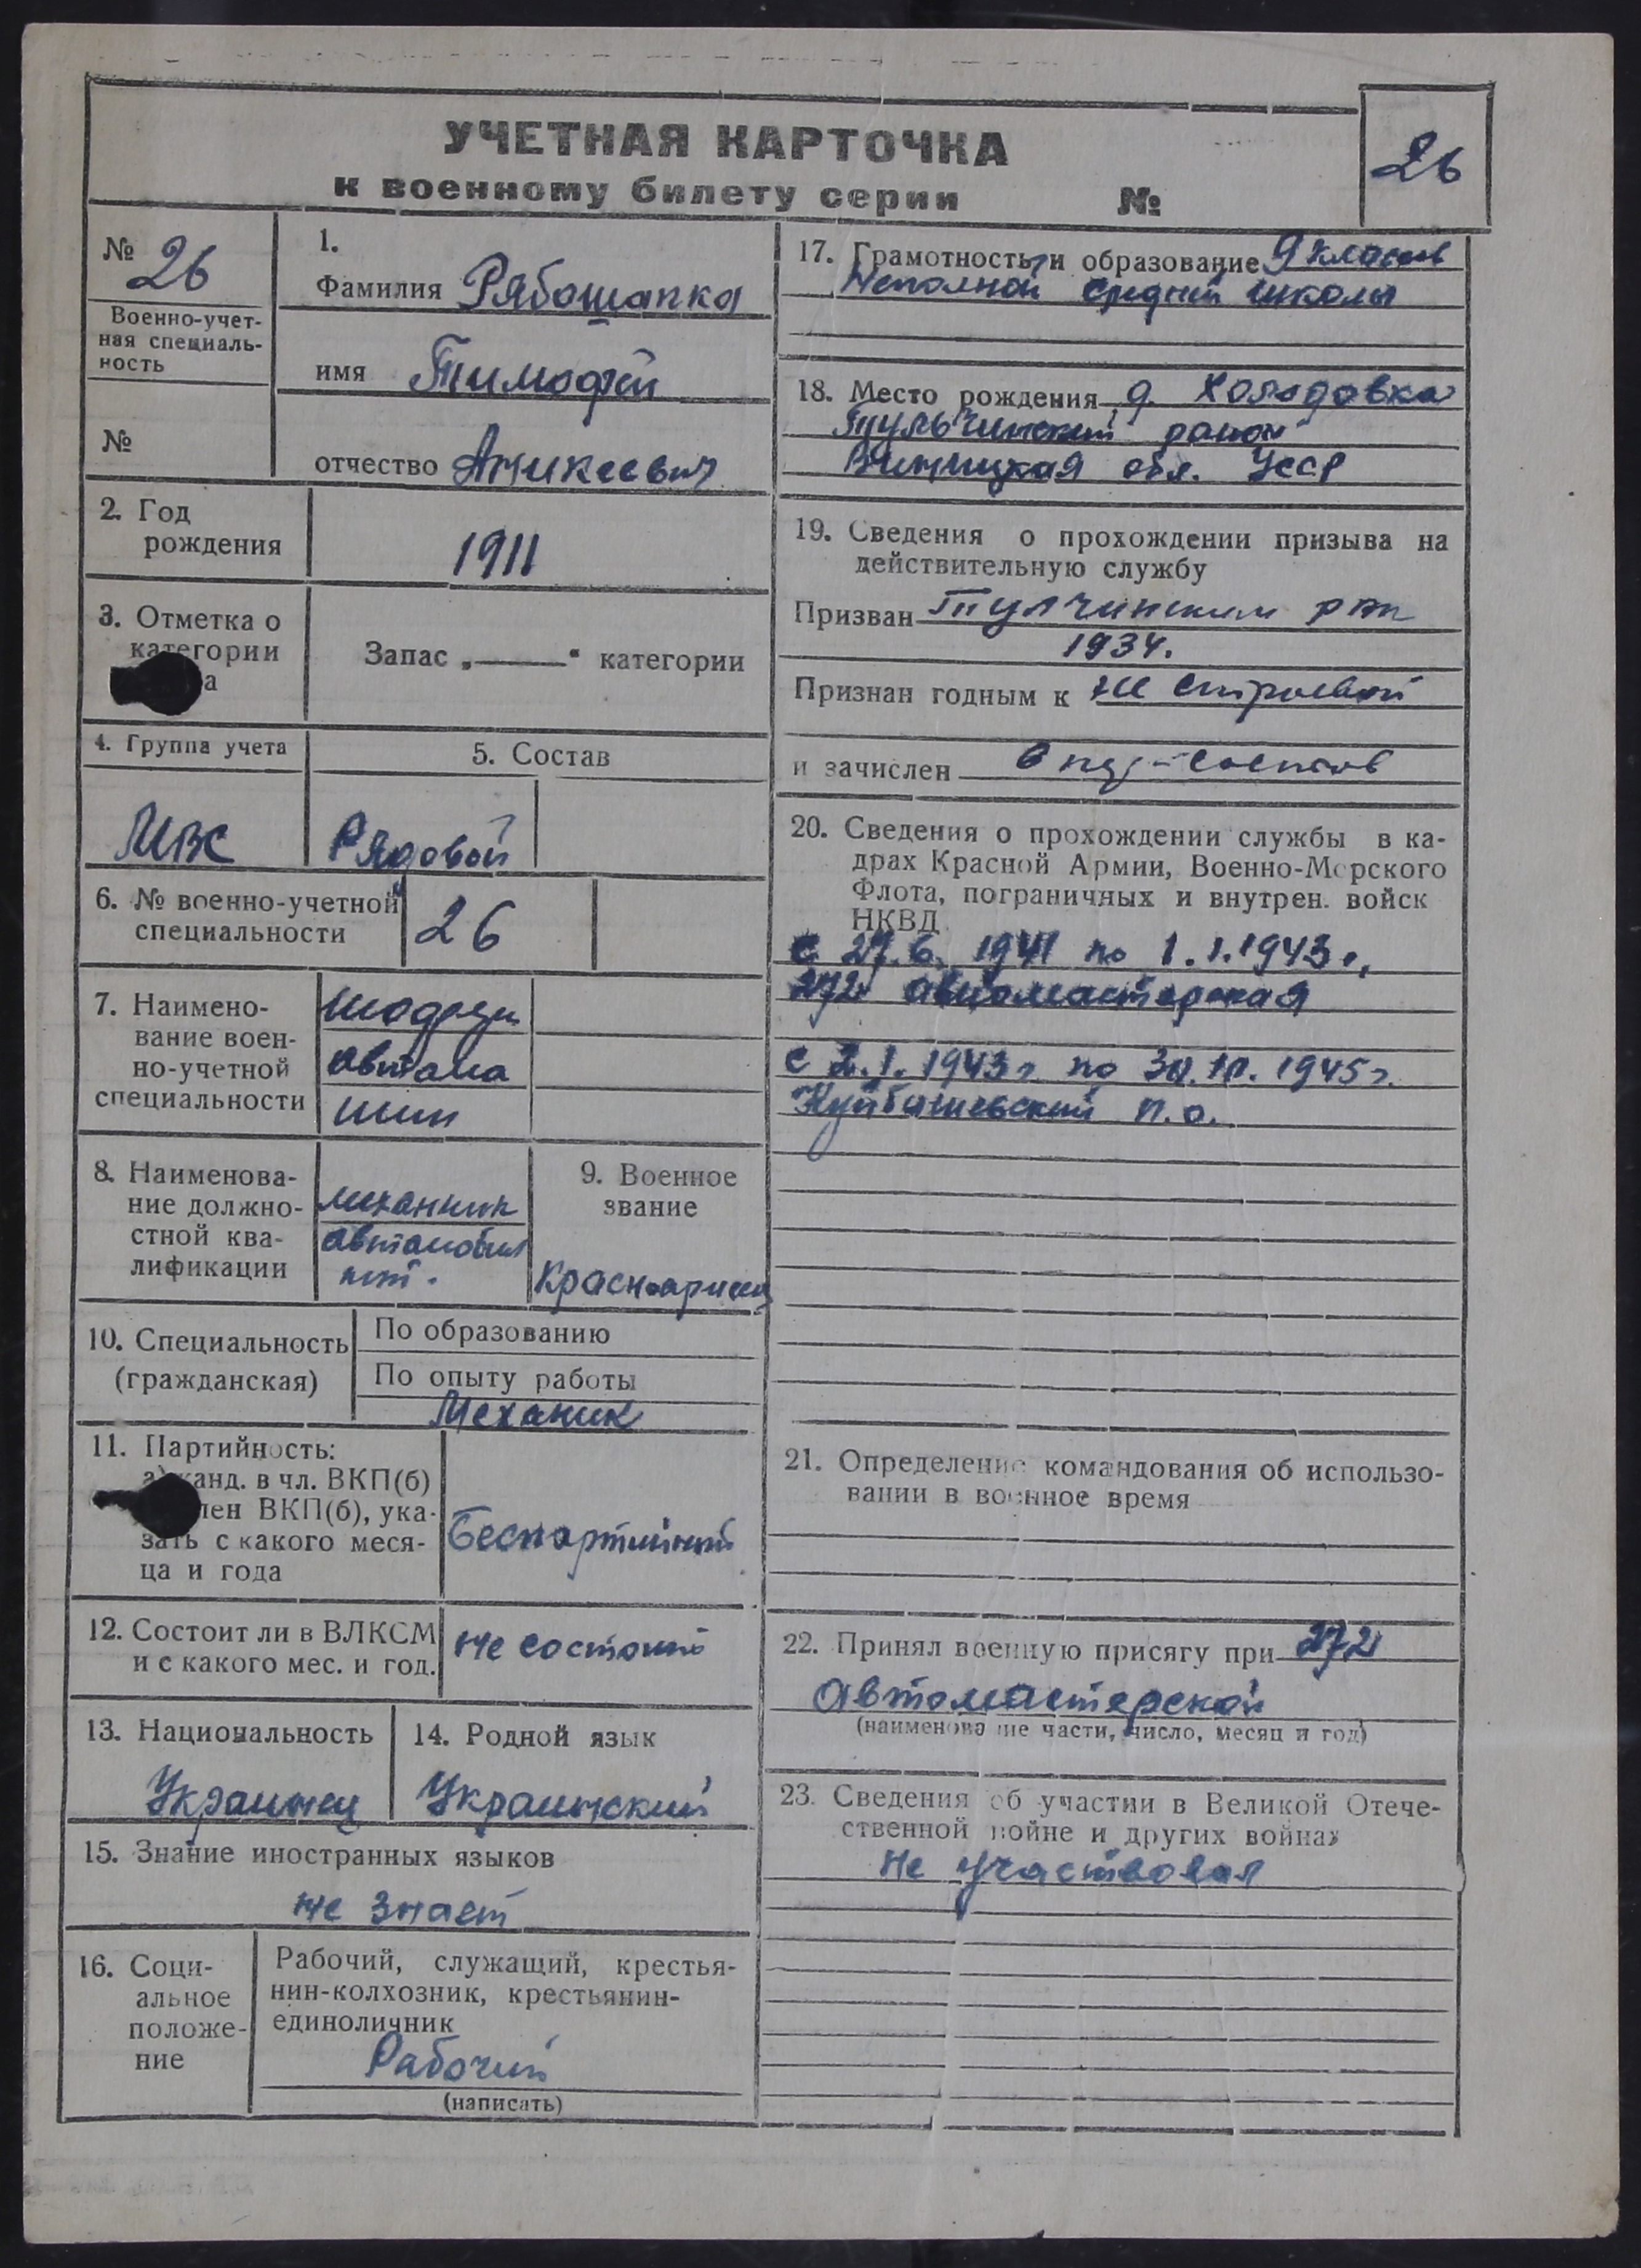 УЧЕТНАЯ КАРТОЧКА
к военному билету серии №
26
№ 26
Военно-учет-
ная специаль-
ность
№
1.
Фамилия Рябошапка
имя Тимофей
отчество Аникеевич
2. Год
рождения
1911
3. Отметка о
категории
а
Запас „——“ категории
4. Группа учета
5. Состав
Рядовой
6. № военно-учетной
специальности
26
7. Наимено-
вание воен-
но-учетной
специальности
автома
шин
8. Наименова-
ние должно-
стной ква-
лификации
механик
автомобил
9. Военное
звание
Красноармеец
10. Специальность
(гражданская)
По образованию
По опыту работы
Механик
11. Партийность:
а) канд. в чл. ВКП(б)
член ВКП(б), ука-
зать с какого меся-
ца и года
Беспартийный
12. Состоит ли в ВЛКСМ
и с какого мес. и год.
не состоит
13. Национальность
Украинец
14. Родной язык
Украинский
15. Знание иностранных языков
не знает
16. Соци-
альное
положе-
ние
Рабочий, служащий, крестья-
нин-колхозник, крестьянин-
единоличник
Рабочий
(написать)
17. Грамотность и образование 9 класов
Неполной средней школы
18. Место рождения д. Холодовка
Тульчинский район
Винницкая обл. УССР
19. Сведения о прохождении призыва на
действительную службу
Призван Тулчинским
1934.
Признан годным к не строевой
и зачислен
20. Сведения о прохождении службы в ка-
драх Красной Армии, Военно-Морского
Флота, пограничных и внутрен. войск
НКВД
с 27.6. 1941 по 1.1.1943г.
272 авиомастерская
с 2.1.1943г. по 1945г.
Куйбышевский п.о.
21. Определение командования об использо-
вании в военное время
22. Принял военную присягу при 272
автомастерской
(наименование части, число, месяц и год)
23. Сведения об участии в Великой Отече-
ственной войне и других войнах
не участвовал